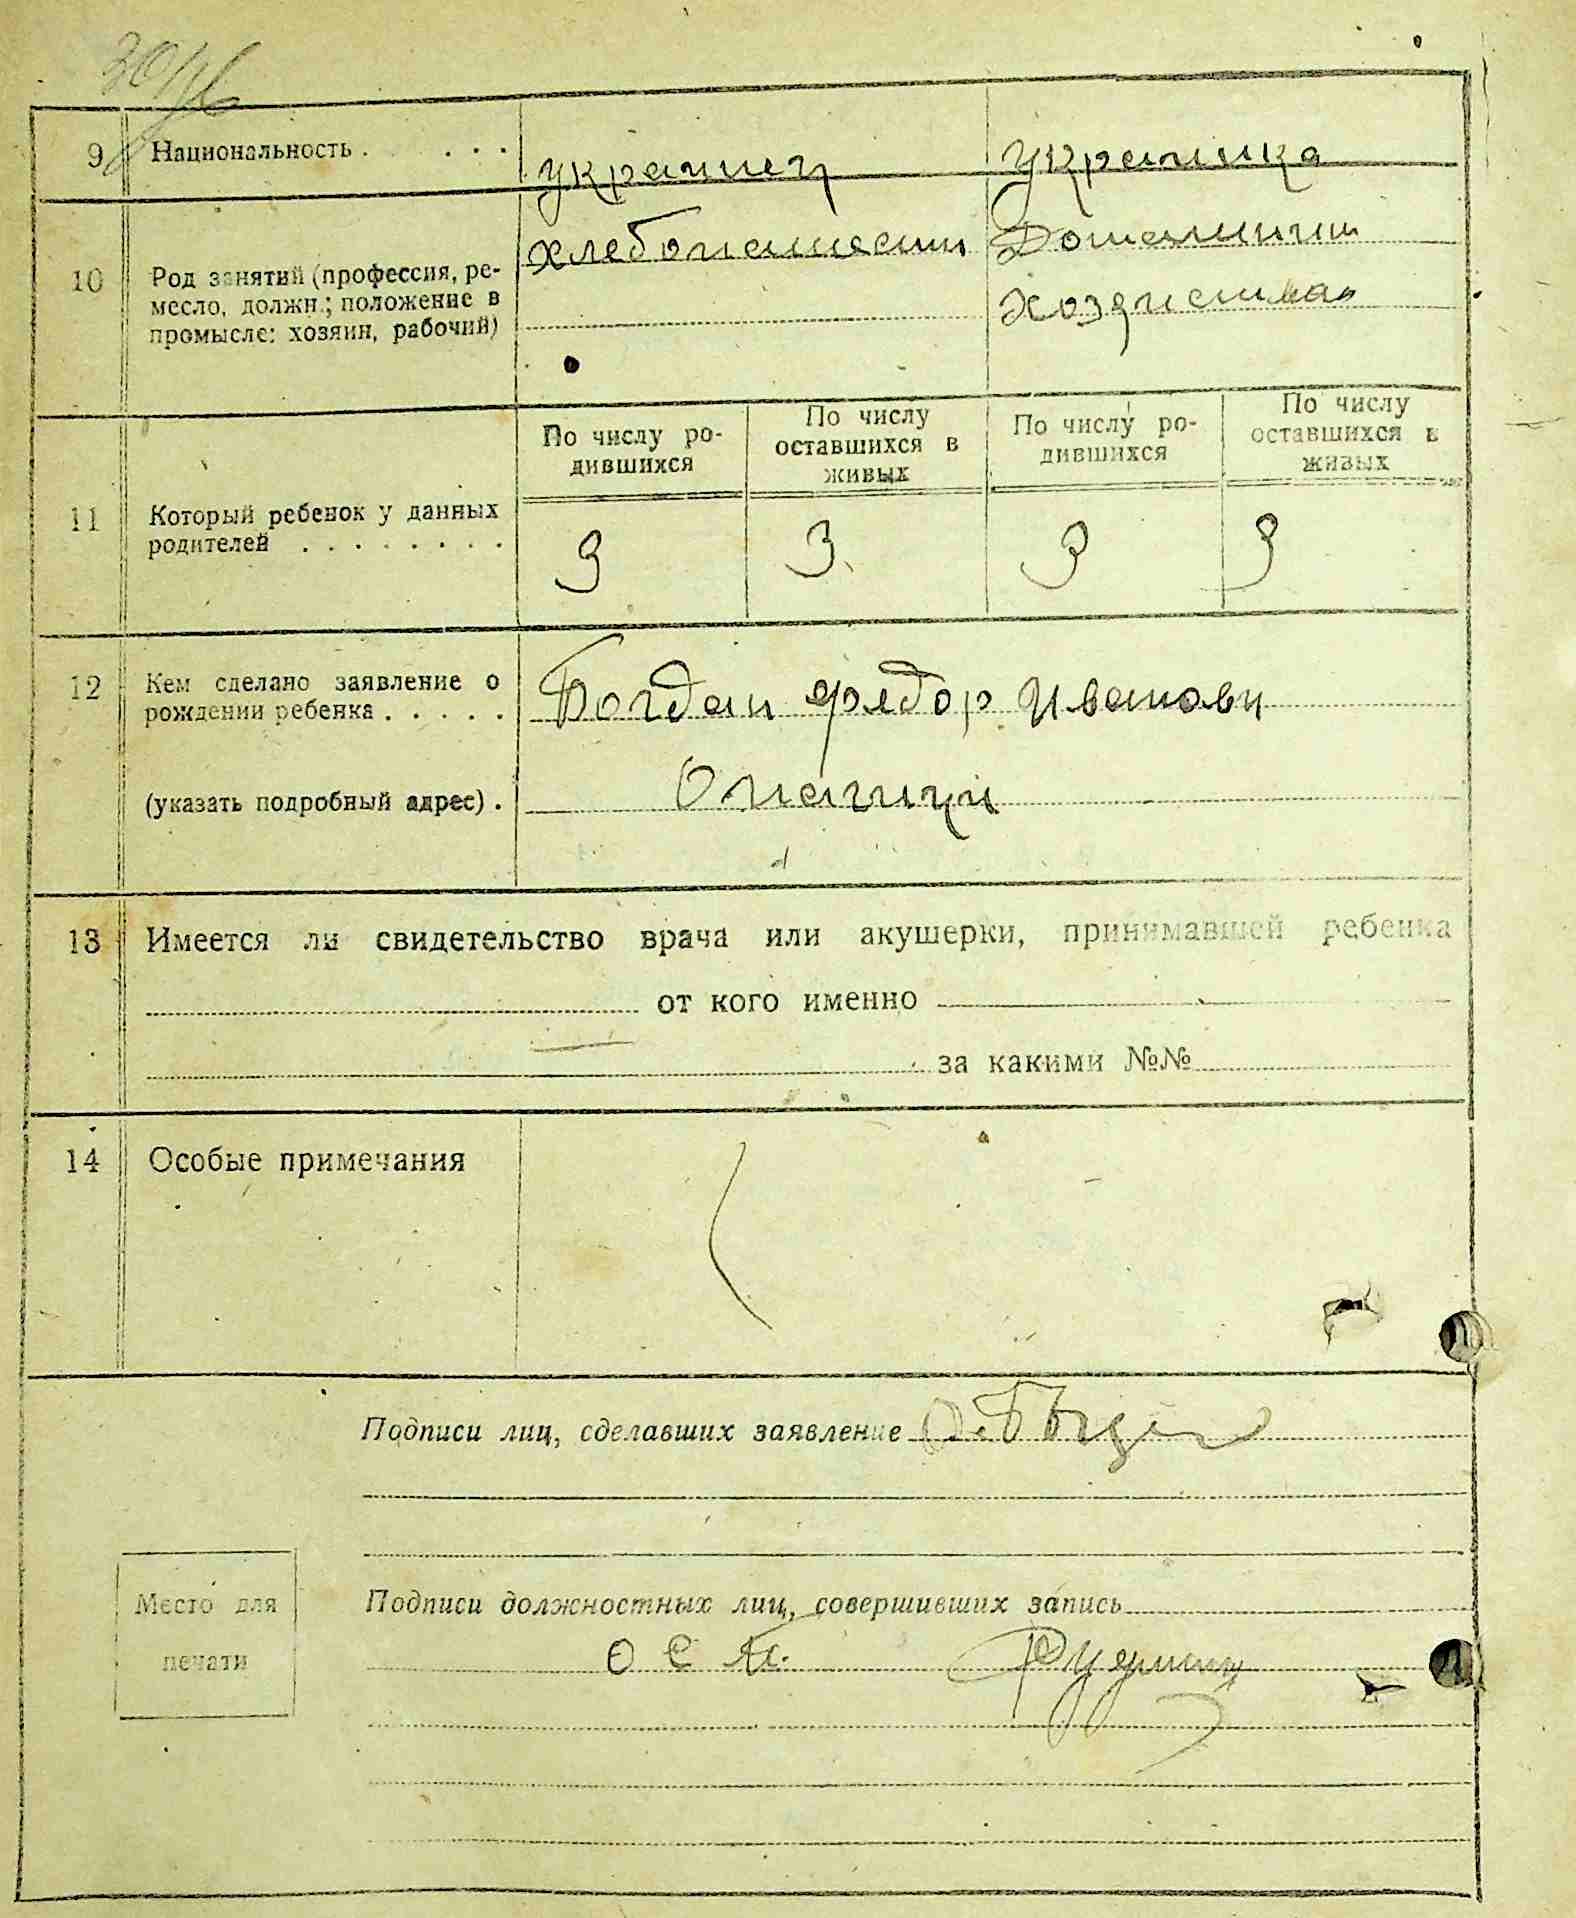 9 Национальность . . . . украинец украинка
10 Род занятий (профессия, ре-
месло, должн.; положение в
промысле: хозяин, рабочий)
хлебопашеств Домашнии
хозяиства
11 Который ребенок у данных
родителей . . . . . . . .
По числу ро-
дившихся
По числу
оставшихся в
живых
По числу ро-
дившихся
По числу
оставшихся в
живых
3 3 3 3
12 Кем сделано заявление о
рождении ребенка . . . . .
Богдан Федор Иванови
(указать подробный адрес) .
13 Имеется ли свидетельство врача или акушерки, принимавшей ребенка
от кого именно
за какими №№
14 Особые примечания
Подписи лиц, сделавших заявление
Место для
печати
Подписи должностных лиц, совершивших запись